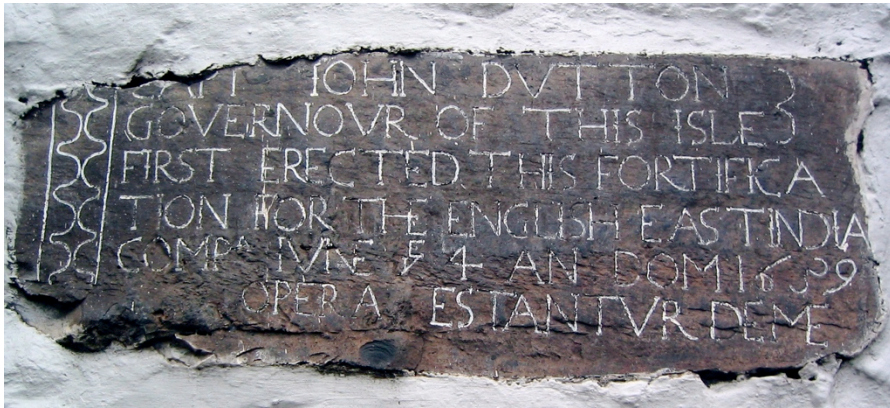 CAPT IOHN DVTTON
GOVERNOVR OF THIS ISLE
FIRST ERECTED THIS FORTIFICA
TION FOR THE ENGLISH EAST INDIA
COMPA IVNE Ye 4 AN DOM 1659
OPERA ESTANTVR DEME